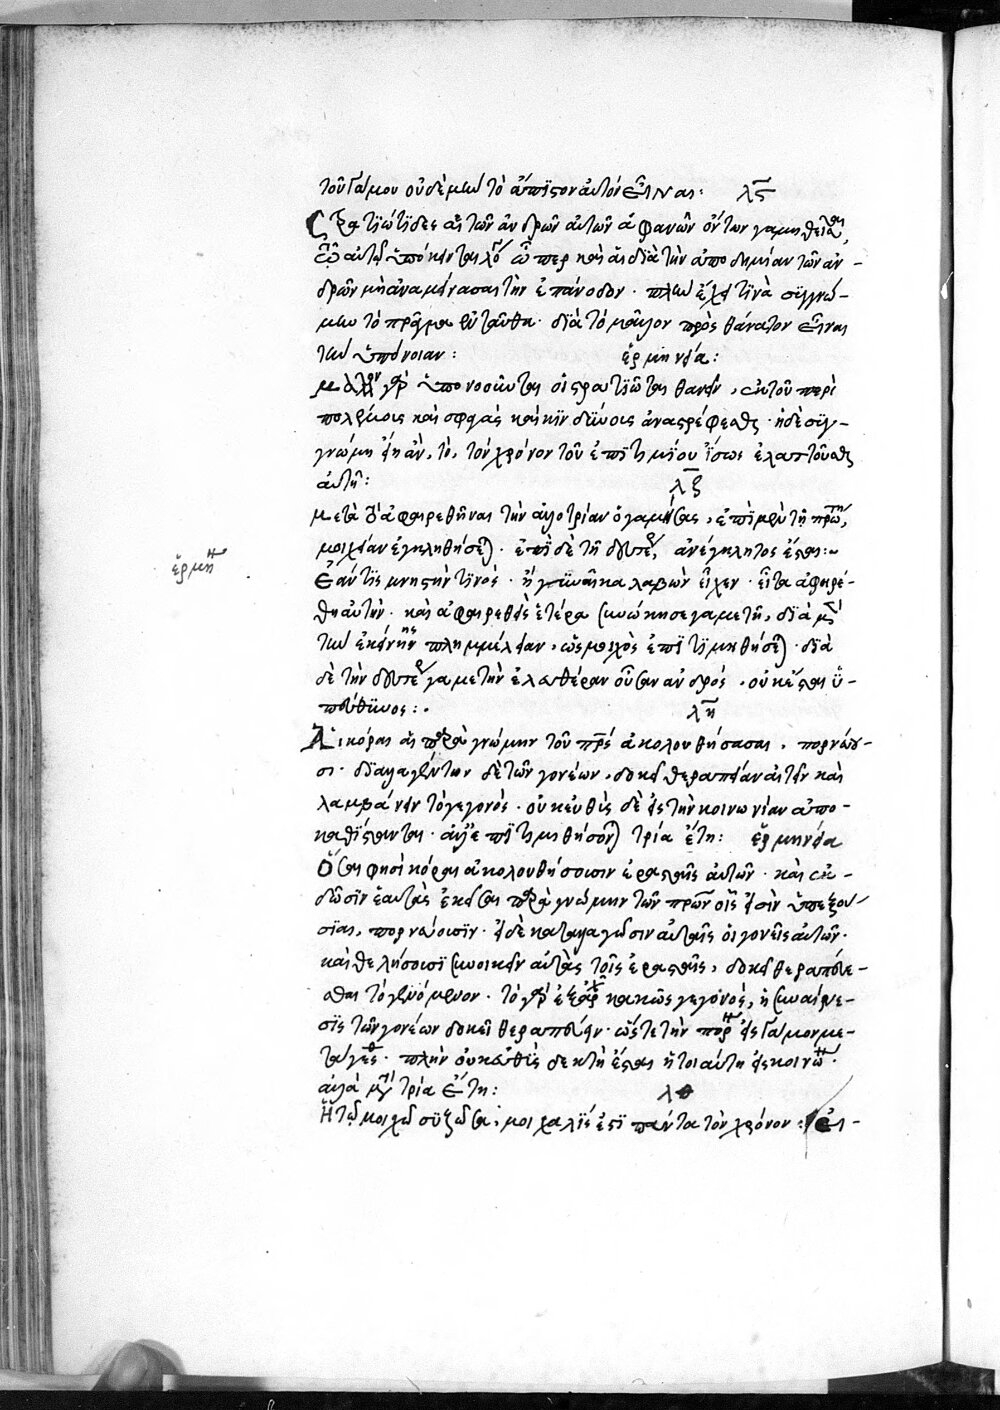 τοῦ γάμου οὐδὲ μὴν τὸ ἄπιστον αὐτὸν εἶναι: λϛ
Στρατιώτιδες αἱ τῶν ἀνδρῶν αὐτῶν ἀφανῶν ὄντων γαμηθεῖσαι,
τῷ αὐτῷ ὑπόκεινται λόγῳ ὥπερ καὶ αἱ διὰ τὴν ἀποδημίαν τῶν ἀν-
δρῶν μὴ ἀναμείνασαι τὴν ἐπάνοδον· πλὴν ἔχει τινὰ συγγνώ-
μην τὸ πρᾶγμα ἐνταῦθα· διὰ τὸ μᾶλλον πρὸς θάνατον εἶναι
τὴν ὑπόνοιαν: ἑρμηνεία:
μᾶλλον γὰρ ὑπονοοῦνται οἱ στρατιῶται θανεῖν, ἐκ τοῦ περὶ
πολέμοις καὶ σφαγὰς καὶ κινδύνοις ἀναστρέφεσθαι· ἡ δὲ συγ-
γνώμη εἴη ἂν, τὸ, τὸν χρόνον τοῦ ἐπιτιμίου ἴσως ἐλαττοῦσθαι
αὐτῇ: λζ
μετὰ δὲ ἀφαιρεθῆναι τὴν ἀλλοτρίαν ὁ γαμήσας, ἐπὶ μὲν τῇ πρώτῃ,
μοιχείαν ἐγκληθήσεται· ἐπὶ δὲ τῇ δευτέρᾳ, ἀνέγκλητος ἔσται:~
ἑρμη
Ἐάν τις μνηστήν τινὸς· ἢ γυναῖκα λαβὼν εἶχεν· εἶτα ἀφῃρέ-
θη αὐτὴν· καὶ ἀφαιρεθεὶς ἑτέρα συνῴκησε γαμετῇ, διὰ μὲν
τὴν ἐκείνης πλημμέλειαν, ὡς μοιχὸς ἐπιτιμηθήσεται· διὰ
δὲ τὴν δευτέραν γαμετὴν ἐλευθέραν οὖσαν ἀνδρός, οὐκ ἔσται ὑ-
πεύθυνος:· λη
Αἱ κόραι αἱ παρὰ γνώμην τοῦ πατρὸς ἀκολουθήσασαι, πορνεύου-
σι· διαλλαγέντων δὲ τῶν γονέων, δοκεῖ θεραπείαν αἰτεῖν καὶ
λαμβάνειν τὸ γεγονός· οὐκ εὐθὺς δὲ εἰς τὴν κοινωνίαν ἀπο-
καθίστανται· ἀλλ' ἐπιτιμηθήσονται τρία ἔτη: ἑρμηνεία
Ὅσαι φησὶ κόραι ἀκολουθήσουσιν ἐρασταῖς αὐτῶν· καὶ ἐκ-
δῶσιν ἑαυτὰς ἐκείναι παρὰ γνώμην τῶν πατέρων οἷς εἰσὶν ὑπεξού-
σιαι, πορνεύουσιν· εἰ δὲ καταλλαγῶσιν αὐταῖς οἱ γονεῖς αὐτῶν·
καὶ θελήσουσι συνοικεῖν αὐτὰς τοῖς ἐρασταῖς, δοκεῖ θεραπεύε-
σθαι τὸ γενόμενον· τὸ γὰρ ἐξ ἀρχῆς κακῶς γεγονός, ἡ συναίνε-
σις τῶν γονέων δοκεῖ θεραπεύειν· ὥστε τὴν πορνείαν εἰς γάμον με-
ταγεσθαι· πλὴν οὐκ εὐθὺς δεκτὴ ἔσται ἡ τοιαύτη εἰς κοινωνίαν·
ἀλλὰ μετὰ τρία ἔτη: λθ
Ἡ τῷ μοιχῷ συζῶσα, μοιχαλίς ἐστι πάντα τὸν χρόνον: Εἰ-